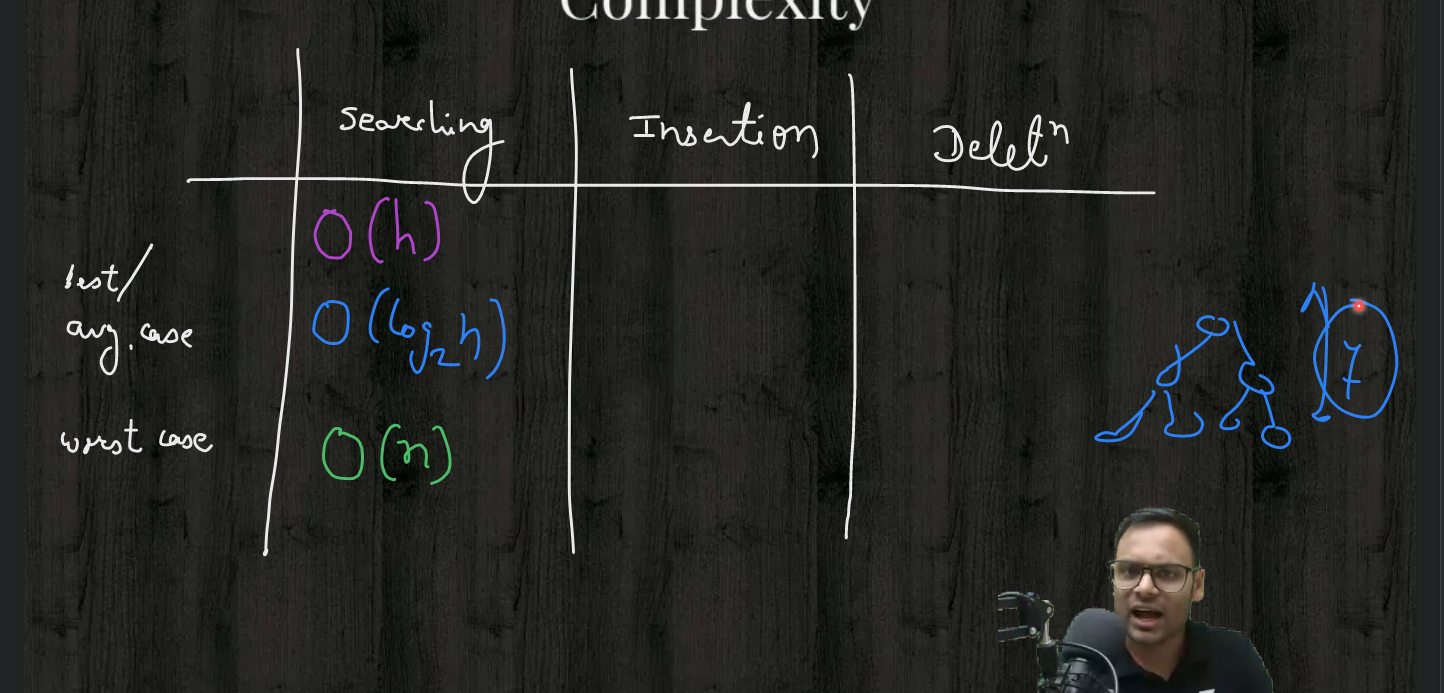 Complexity
Searching Insertion Deletⁿ
O(h)
best/
avg. case O(log₂n)
7
worst case O(n)